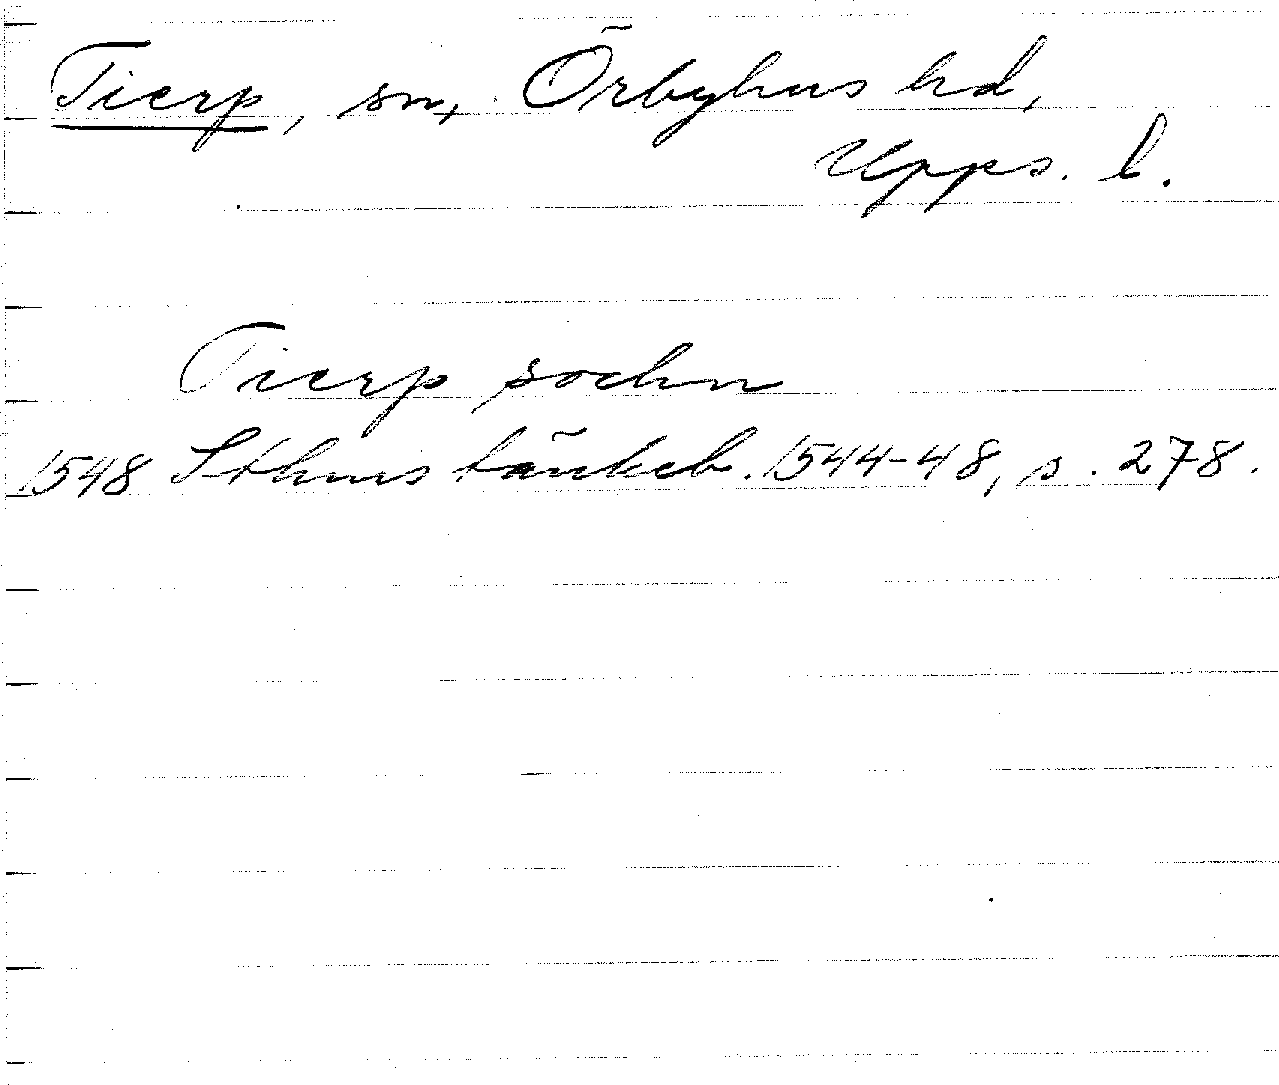 Tierp, sn, Örbyhus hd,
Upps. l.
Tierp sochn
1548 Sthms tänkeb. 1544-48, s. 278.